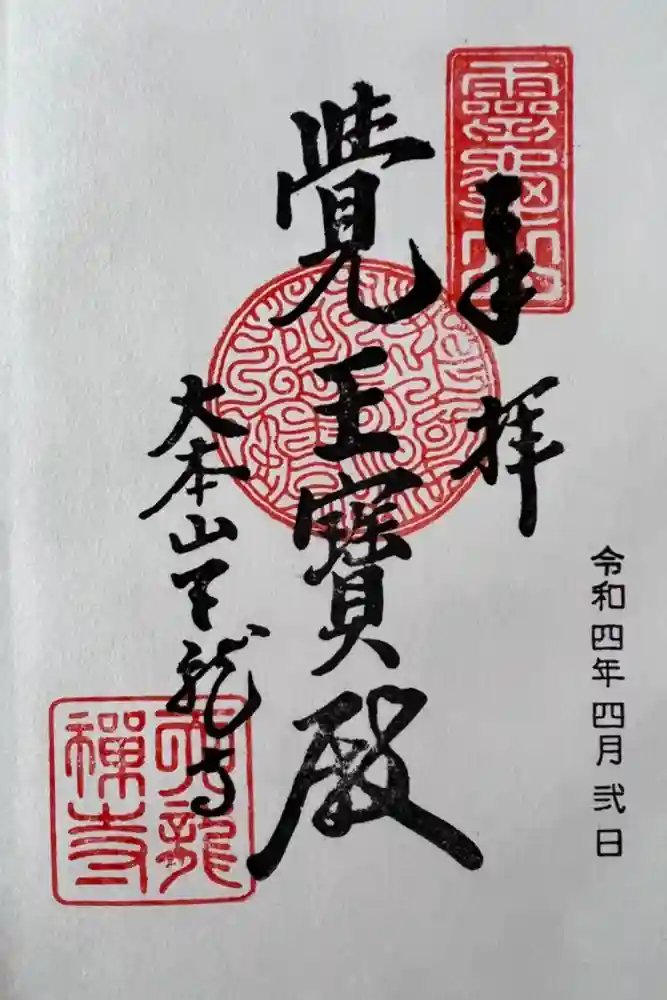 靈龜山
奉拝
令和四年四月弐日
覺王寶殿
大本山天龍寺
天龍
禪寺